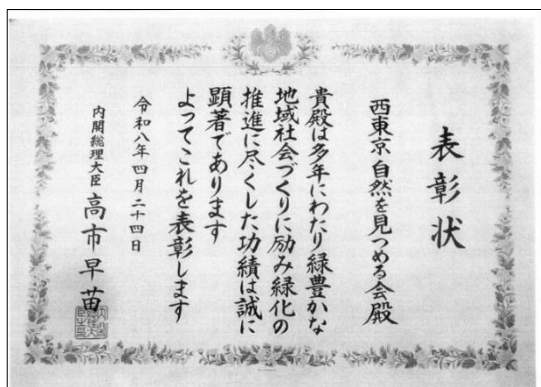 表彰状
西東京自然を見つめる会殿
貴殿は多年にわたり緑豊かな
地域社会づくりに励み緑化の
推進に尽くした功績は誠に
顕著であります
よってこれを表彰します
令和八年四月二十四日
内閣総理大臣 高市早苗